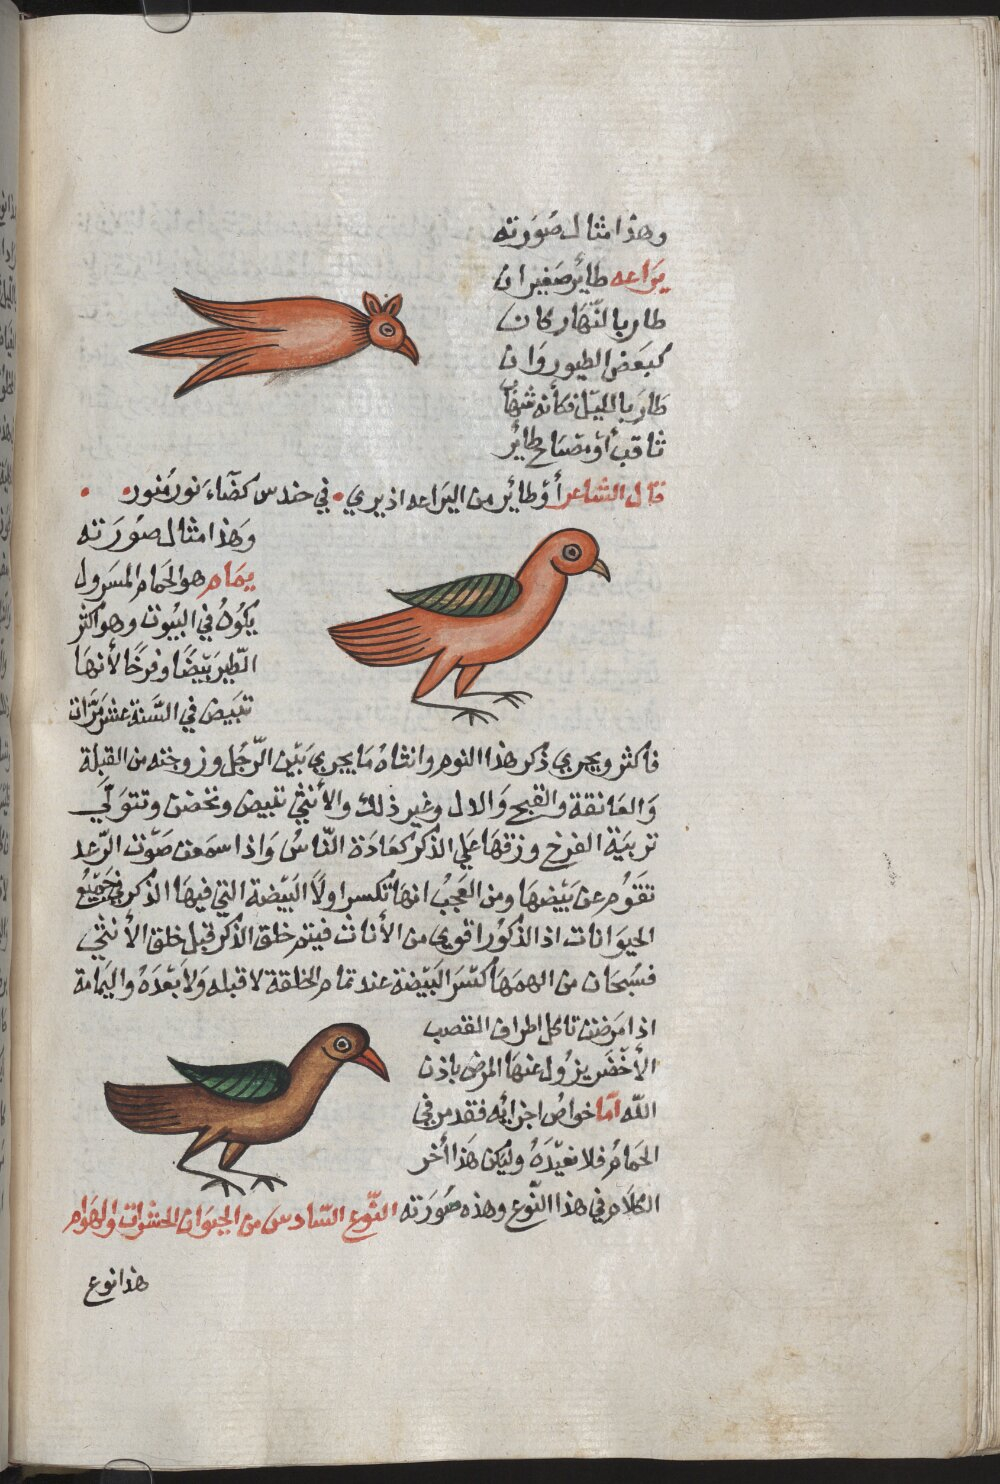 وهذا مثال صورته
يراعه طاير صغير ان
طار بالنهار كان
كبعض الطيور وان
طار بالليل فكأنه شهاب
ثاقب أو مصباح طاير
قال الشاعر أو طائر من اليراعه اذ يري في حندس كضآء نور منور
وهذا مثال صورته
يمام هو الحمام المسرول
يكون في البيوت وهو اكثر
الطير بيضا وفرخا لأنها
تبيض في السنة عشر مرات
فاكثر ويجري ذكر هذا النوم وانثاه ما يجري بين الرجل وزوجته من القبلة
والعانقة والقبح والدل وغير ذلك والأنثي تبيض وتحضن وتتولي
تربية الفرخ وزقها علي الذكر كعادة الناس واذا سمعن صوت الرعد
تقوم عن بيضها ومن العجب انها تكسر اولا البيضة التي فيها الذكر في جميع
الحيوانات اذ الذكور اقوي من الأناث فيتم خلق الذكر قبل خلق الأنثي
فسبحان من الهمها كسر البيضة عند تمام الخلقة لا قبله ولا بعده واليمامة
اذا مرضن تاكل اطراف القصب
الأخضر يزول عنها المرض باذن
الله اما خواص اجزائه فقد مر في
الحمام فلا نعيده وليكن هذا أخر
الكلام في هذا النوع وهذه صورته النوع السادس من الحيوان الحشرات والهوام
هذا نوع